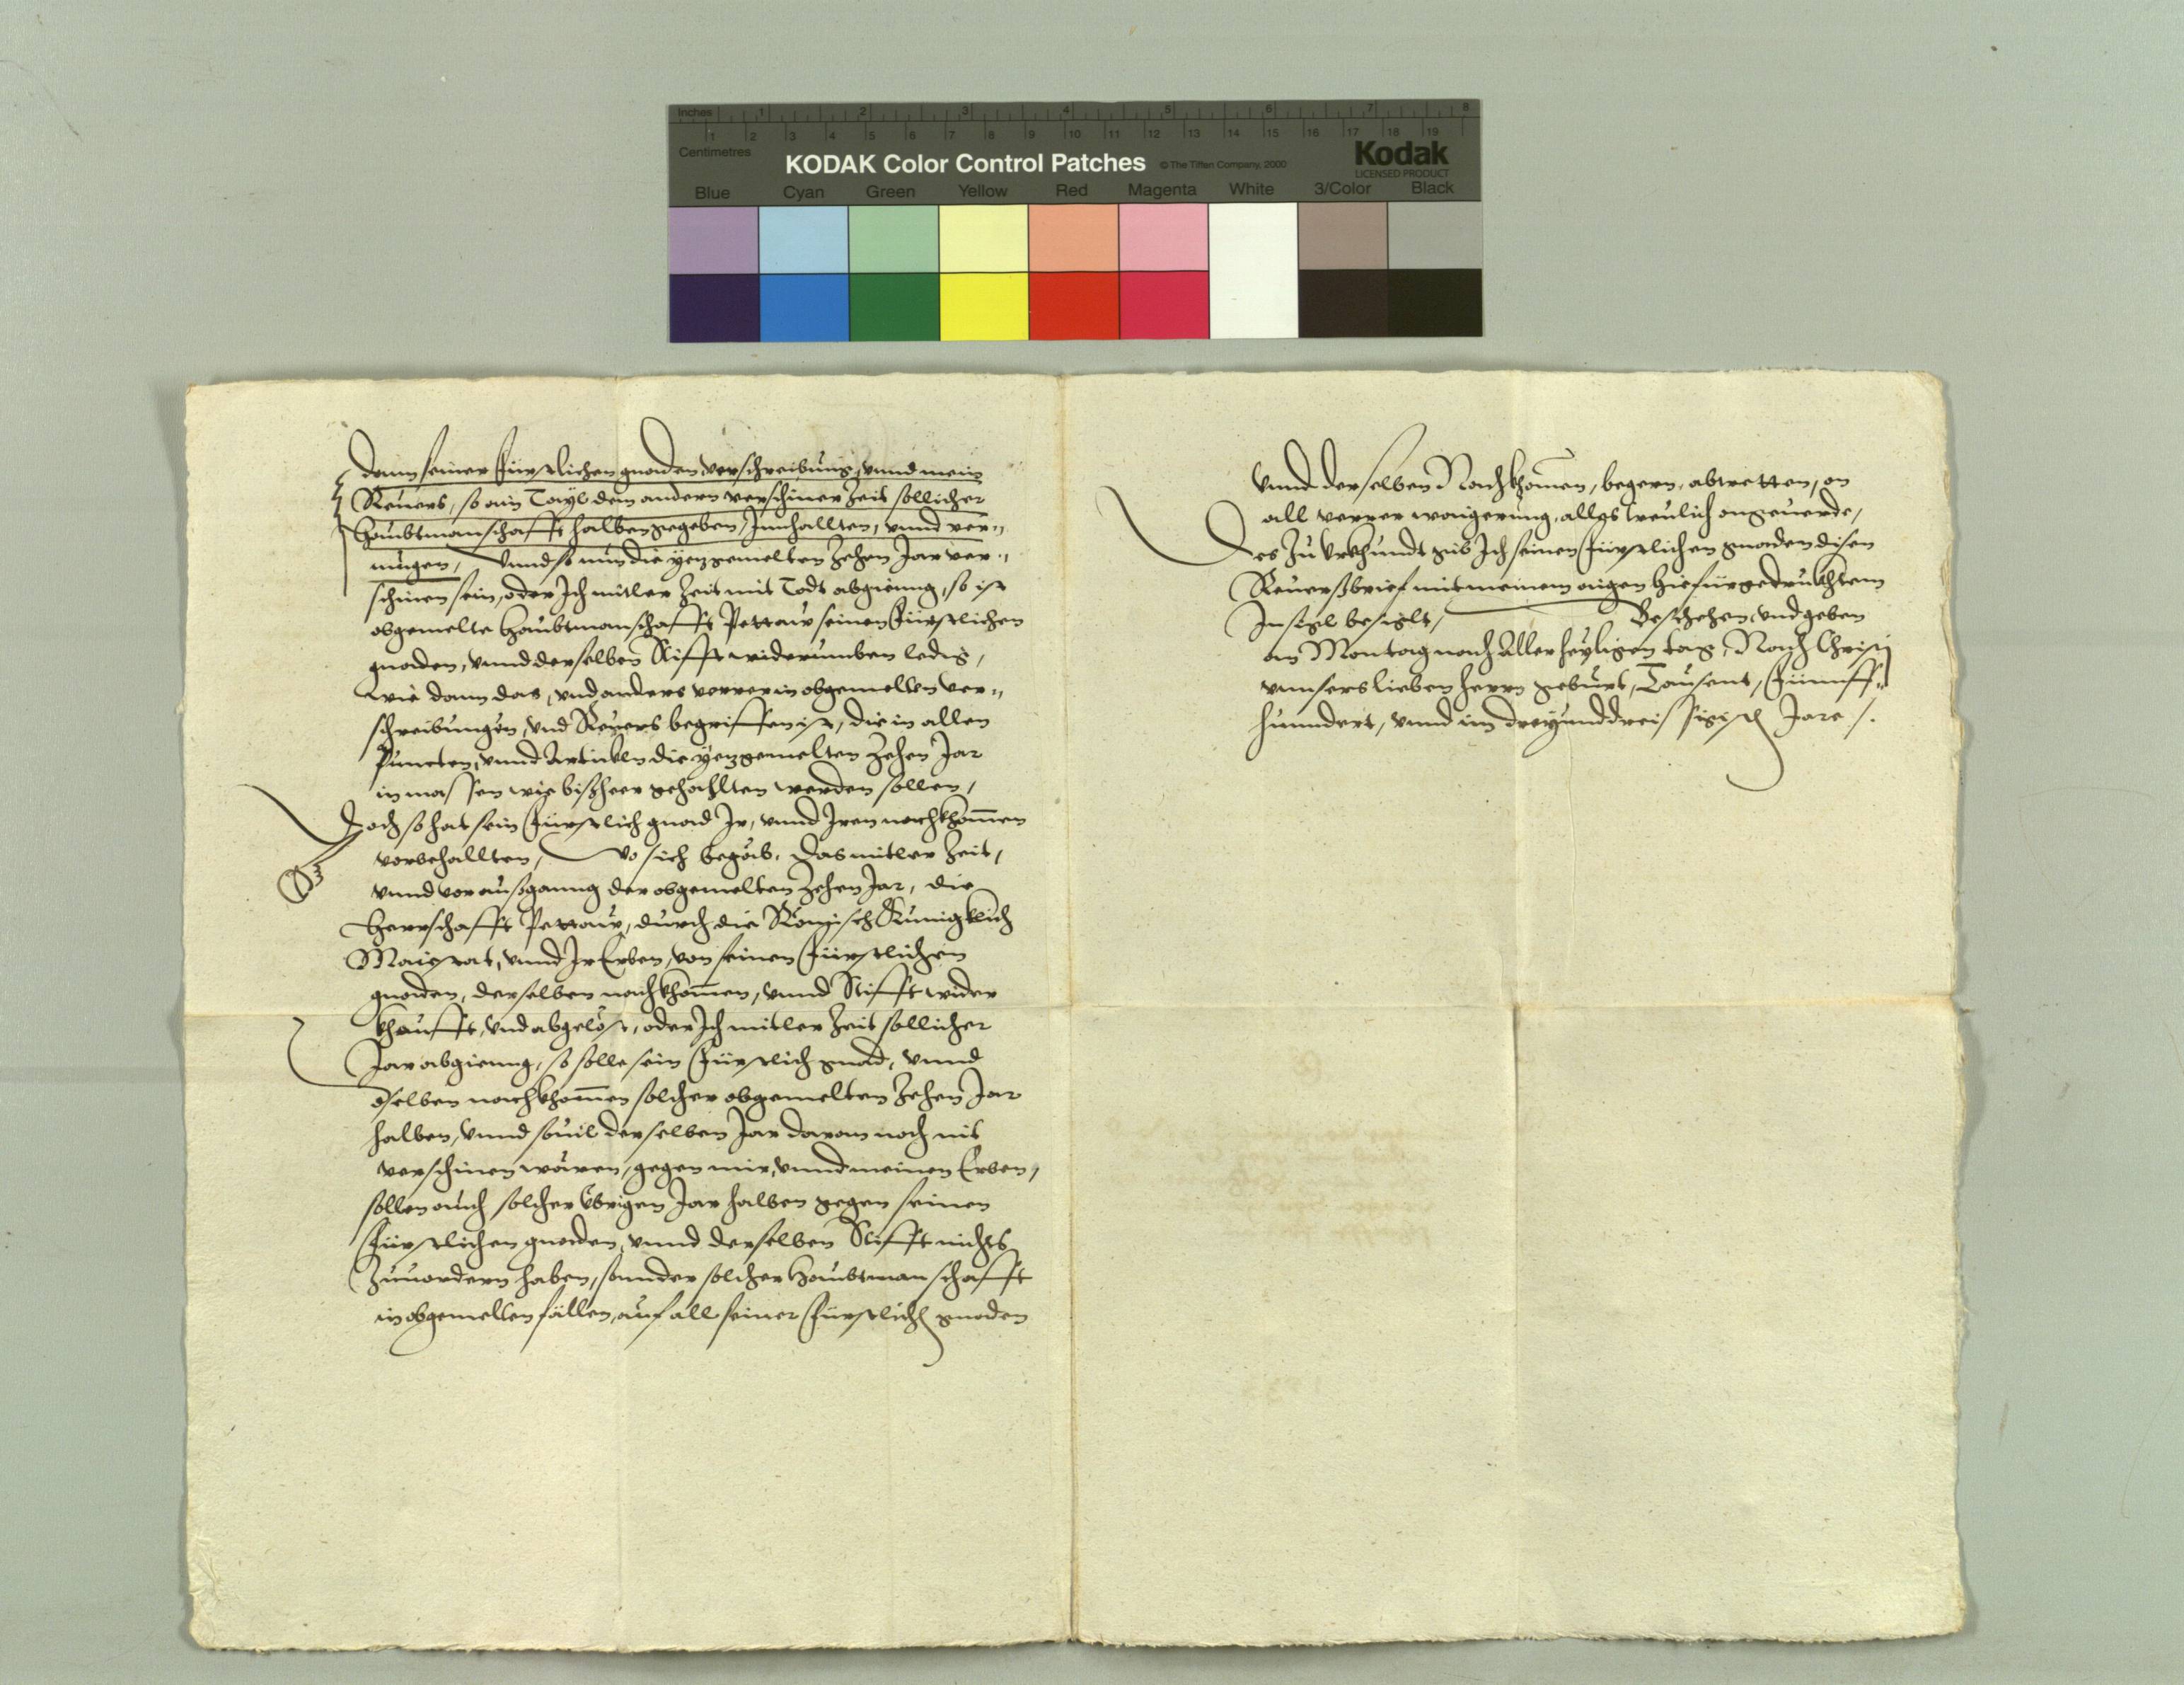 Inches 1 2 3 4 5 6 7 8
1 2 3 4 5 6 7 8 9 10 11 12 13 14 15 16 17 18 19
Centimetres
KODAK Color Control Patches © The Tiffen Company, 2000 Kodak
LICENSED PRODUCT
Blue Cyan Green Yellow Red Magenta White 3/Color Black
dann seiner Fürstlichen gnaden verschreibung, vnnd mein
Reuers, so ain Tayl dem andern verschiner Zeit sollicher
Haubtmanschafft halben gegeben, Innhallten, vnnd ver„
mugen, Vnnd so nun die yezgemelten Zehen Jar ver„
schinen sein, oder Ich mitler Zeit mit Todt abgienng, so ist
obgemelte Haubtmanschafft Pettaw seinen Fürstlichen
gnaden, vnnd derselben Stifft widerumben ledig,
wie dann das, vnd anders verrer in obgemellten ver„
schreibungen, vnd Reuers begriffen ist, die in allen
Puncten, vnnd Articklen die yezgemelten Zehen Jar
inmassen wie bißheer gehahlten werden sollen,
Doch so hat sein Fürstlich gnad Ir, vnnd Iren nachkhomen
vorbehallten, Wo sich begäb, das mitler Zeit,
vnnd vor außganng der obgemelten Zehen Jar, die
Herrschafft Pettaw, durch die Römisch Kunigklich
Maiestat, vnnd Ir Erben, von seinen Fürstlichen
gnaden, derselben nachkhomen, vnnd Stifft wider
khaufft, vnd abgelöst, oder Ich mitler Zeit sollicher
Jar abgienng, so solle sein Fürstlich gnad, vnnd
dselben nachkhomen solcher obgemelten Zehen Jar
halben, vnnd souil derselben Jar daran noch nit
verschinen wären, gegen mir, vnnd meinen Erben,
sollen auch solcher übrigen Jar halben gegen seinen
Fürstlichen gnaden, vnnd derselben Stifft nichts
Zuuordern haben, sonnder solcher Haubtmanschafft
in obgemellten fällen, auf all seiner Fürstlich gnaden
Vnnd derselben Nachkhomen, begern, abtretten, on
all verrer waigerung, alles treulich ongeuerde,
Des zu Vrkhundt gib Ich seinen Fürstlichen gnaden disen
Reuerßbrief mit meinem aigen hiefürgedruckhtem
Insigl besiglt, Beschehen, vnd geben
an Montag nach Aller heyligen tag, Nach Christj
vnnsers lieben herrn geburt, Tausent, Fünnff„
hunndert, vnnd im dreyunddreissigist Jare /.